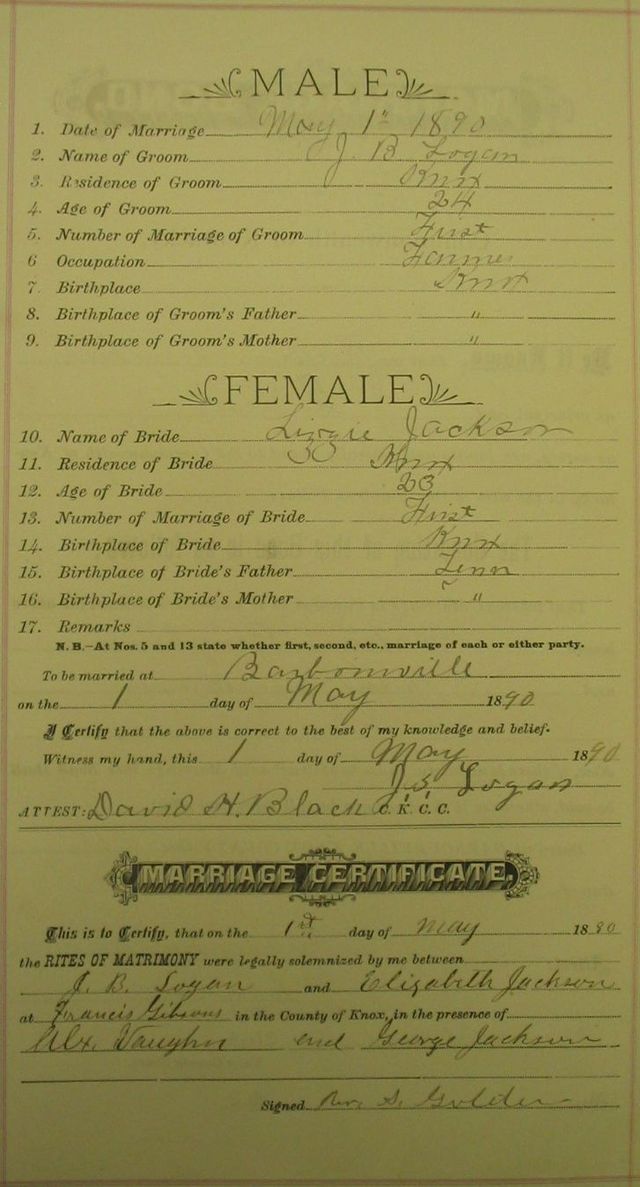 MALE
1. Date of Marriage May 1st 1890
2. Name of Groom J. B Logan
3. Residence of Groom Knox
4. Age of Groom 24
5. Number of Marriage of Groom First
6 Occupation Farmer
7. Birthplace Knox
8. Birthplace of Groom's Father "
9. Birthplace of Groom's Mother "
FEMALE
10. Name of Bride Lizzie Jackson
11. Residence of Bride Knox
12. Age of Bride 23
13. Number of Marriage of Bride First
14. Birthplace of Bride Knox
15. Birthplace of Bride's Father Tenn
16. Birthplace of Bride's Mother "
17. Remarks
N. B.—At Nos. 5 and 13 state whether first, second, etc., marriage of each or either party.
To be married at Barbourville
on the 1 day of May 1890
I Certify that the above is correct to the best of my knowledge and belief.
Witness my hand, this 1 day of May 1890
Logan
ATTEST: David H. Black C. K. C. C.
MARRIAGE CERTIFICATE.
This is to Certify, that on the 1st day of May 1890
the RITES OF MATRIMONY were legally solemnized by me between
J. B. Logan and Elizabeth Jackson
at Francis Gibsons in the County of Knox, in the presence of
Alx. Vaughn and George Jackson
Signed Rev. S. Golden